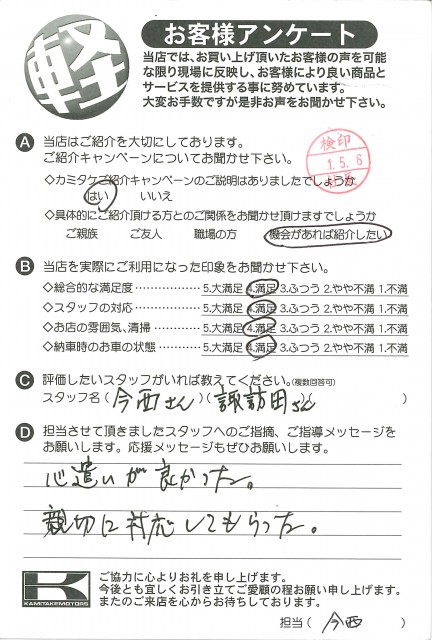 軽
お客様アンケート
当店では、お買い上げ頂いたお客様の声を可能
な限り現場に反映し、お客様により良い商品と
サービスを提供する事に努めています。
大変お手数ですが是非お声をお聞かせ下さい。
A 当店はご紹介を大切にしております。
ご紹介キャンペーンについてお聞かせ下さい。
検印
1.5.6
◇カミタケご紹介キャンペーンのご説明はありましたでしょうか
はい いいえ
◇具体的にご紹介頂ける方とのご関係をお聞かせ頂けますでしょうか
ご親族 ご友人 職場の方 機会があれば紹介したい
B 当店を実際にご利用になった印象をお聞かせ下さい。
◇総合的な満足度 ・・・・・・・・・・ 5.大満足 4.満足 3.ふつう 2.やや不満 1.不満
◇スタッフの対応 ・・・・・・・・・・ 5.大満足 4.満足 3.ふつう 2.やや不満 1.不満
◇お店の雰囲気、清掃 ・・・・・・・ 5.大満足 4.満足 3.ふつう 2.やや不満 1.不満
◇納車時のお車の状態 ・・・・・・・ 5.大満足 4.満足 3.ふつう 2.やや不満 1.不満
C 評価したいスタッフがいれば教えてください。(複数回答可)
スタッフ名 ( 今西さん )( 諏訪田さん )( )
D 担当させて頂きましたスタッフへのご指摘、ご指導メッセージを
お願いします。応援メッセージもぜひお願いします。
心遣いが良かった。
親切に対応してもらった。
K
KAMITAKEMOTORS
ご協力に心よりお礼を申し上げます。
今後とも宜しくお引き立てご愛顧の程お願い申し上げます。
またのご来店を心からお待ちしております。
担当 ( 今西 )